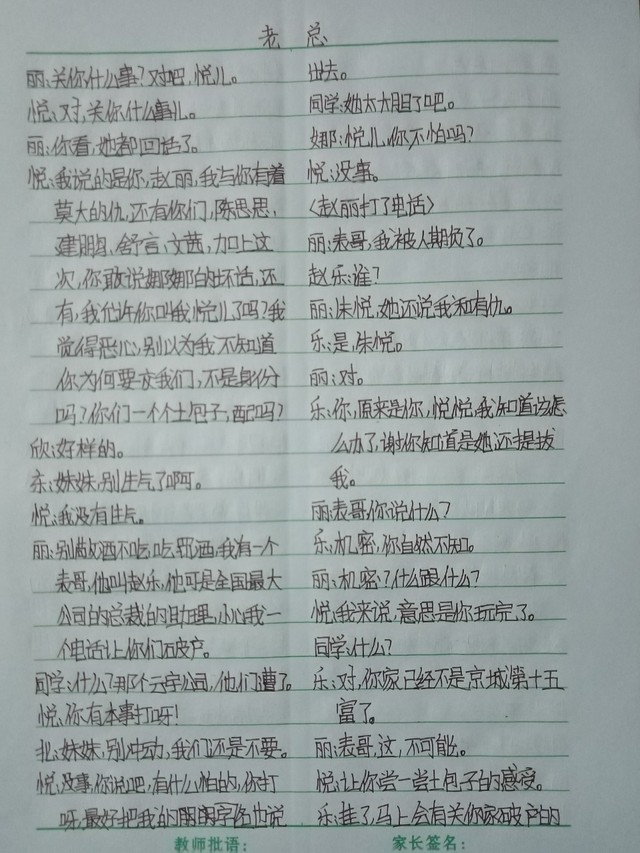 老总
丽:关你什么事?对吧,悦儿。
悦:对,关你什么事儿。
丽:你看,她都回话了。
悦:我说的是你,赵丽,我与你有着
莫大的仇,还有你们,陈思思,
建鹏,舒言,文茜,加上这
次,你敢说娜娜的坏话,还
有,我允许你叫我悦儿了吗?我
觉得恶心,别以为我不知道
你为何要交我们,不是身份
吗?你们一个个土包子,配吗?
欣:好样的。
东:妹妹,别生气了啊。
悦:我没有生气。
丽:别敬酒不吃,吃罚酒,我有一个
表哥,他叫赵乐,他可是全国最大
公司的总裁的助理,小心我一
个电话让你们破产。
同学:什么?那个云宇公司,他们遭了。
悦:你有本事打呀!
北:妹妹,别冲动,我们还是不要。
悦:没事,你说吧,有什么怕的,你打
呀,最好把我的闲闲字伤也说
出去。
同学:她太大胆了吧。
娜:悦儿,你不怕吗?
悦:没事。
〈赵丽打了电话〉
丽:表哥,我被人期负了。
赵乐:谁?
丽:朱悦,她还说我和有仇。
乐:是,朱悦。
丽:对。
乐:你,原来是你,悦悦,我知道该怎
么办了,谢你知道是她还提拔
我。
丽:表哥,你说什么?
乐:机密,你自然不知。
丽:机密?什么跟什么?
悦:我来说,意思是你玩完了。
同学:什么?
乐:对,你家已经不是京城第十五
富了。
丽:表哥,这,不可能。
悦:让你尝一尝土包子的感受。
乐:挂了,马上会有关你家破产的
教师批语:
家长签名: